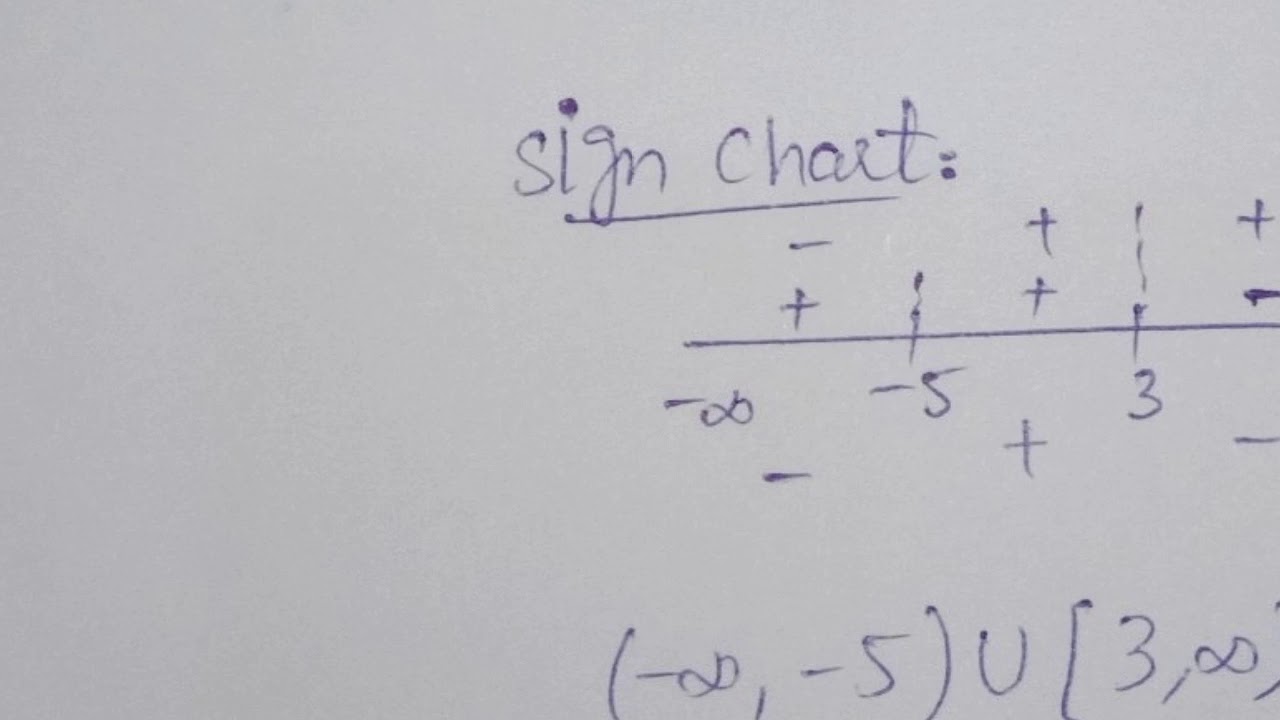 Sign Chart:
- + ¦ +
+ ¦ + ¦ -
-∞ -5 3
- + -
(-∞, -5) ∪ [3, ∞)